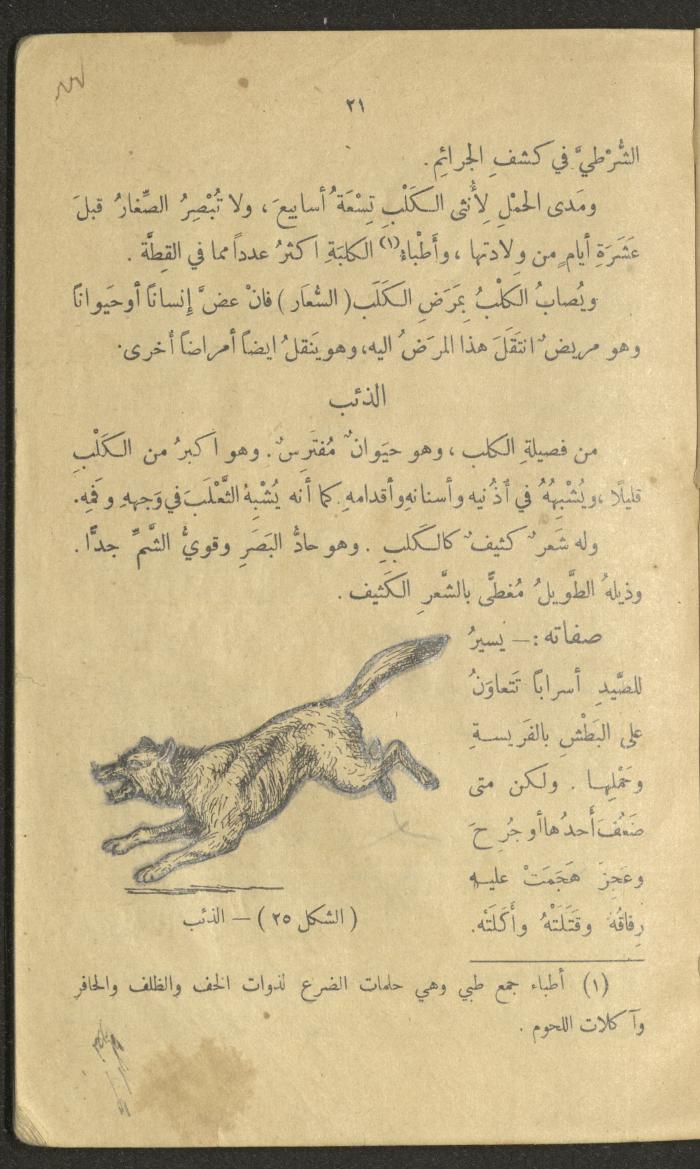 ٢١
الشُّرْطيَّ في كشفِ الجرائمِ.
ومَدى الحمْلِ لِأُنثى الـكَلْبِ تِسْعَةُ أسابيعَ، ولا تُبْصِرُ الصِّغارُ قبلَ
عَشَرَةِ أيامٍ من وِلادتها، وأَطْباءُ(١) الكلبَةِ اكثرُ عدداً مما في القِطَّة.
ويُصابُ الكلْبُ بِمَرَضِ الكَلَب (السُّعَار) فانْ عضَّ إِنساناً أوحَيواناً
وهو مريضٌ انتَقَلَ هذا المرَضُ اليه، وهو يَنقلُ ايضاً أمراضاً أخرى.
الذئب
من فصيلةِ الكلب، وهو حيَوانٌ مُفتَرِسٌ. وهو اكبرُ من الكَلْبِ
قليلًا، ويُشْبِهُهُ في اُذُنيه وأسنانه وأقدامهِ كما أنه يُشْبِهُ الثَّعْلَبَ في وَجههِ وفَمهِ.
وله شَعرٌ كثيفٌ كالـكَلبِ. وهو حادُّ البَصَرِ وقويُّ الشَّمِّ جدًّا.
وذيلهُ الطَّويلُ مُغطًّى بالشَّعرِ الكَثيف.
صفاته: — يسيرُ
للصَّيدِ أسراباً تَتعاوَنُ
على البَطْشِ بالفَريسـةِ
وحَمْلِهـا. ولـكن متى
ضَعُفَ أَحدُها أو جُرِحَ
وعَجِزَ هَجَمَتْ عليـهِ
رِفاقُهُ وقَتَلَتْهُ وأَكَلَتْه.
(الشكل ٢٥) — الذئب
(١) أطباء جمع طبي وهي حلمات الضرع لذوات الخف والظلف والحافر
وآكلات اللحوم.